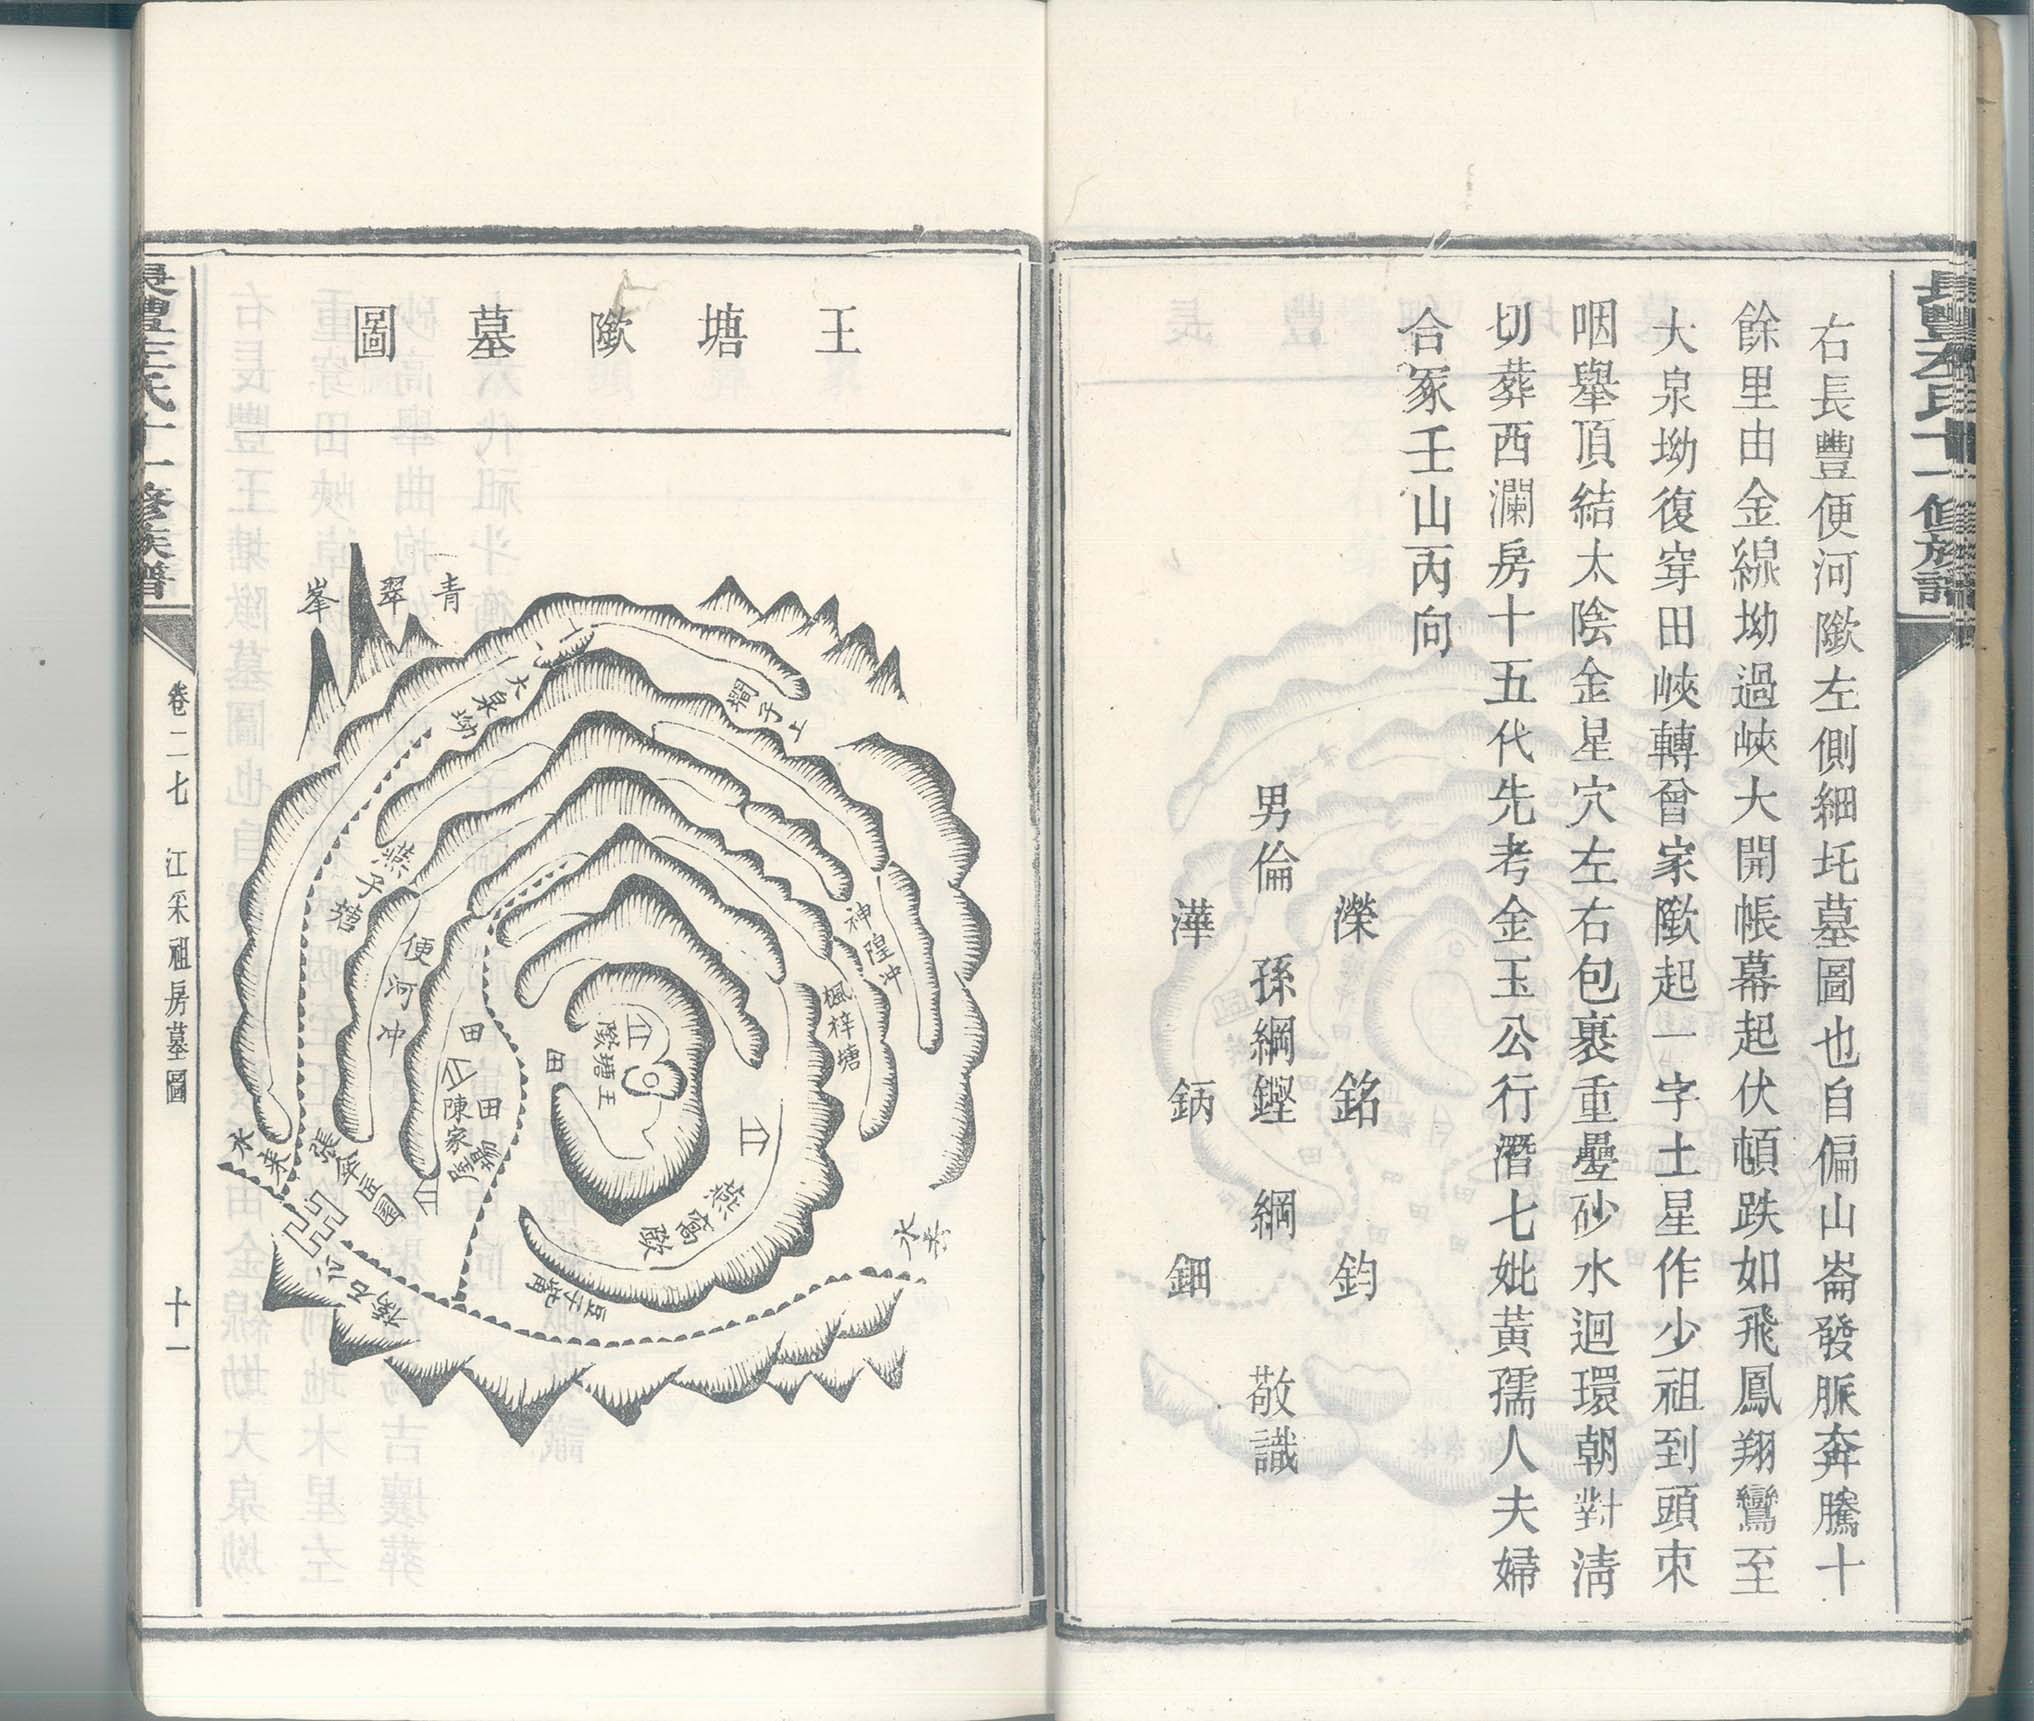 右長豐便河歘左側細圫墓圖也自偏山崙發脈奔騰十
餘里由金線坳過峽大開帳幕起伏頓跌如飛鳳翔鸞至
大泉坳復穿田峽轉曾家歘起一字土星作少祖到頭束
咽舉頂結太陰金星穴左右包裹重疊砂水迴環朝對清
切葬西瀾房十五代先考金玉公行潛七妣黃孺人夫婦
合冢壬山丙向
濼 銘 鈞
男倫 孫綱鏗 綱 敬識
澕 鈵 鈿
王塘歘墓圖
青翠峯
大泉坳
上子塅
燕子塘
便河冲
神隍冲
楓梓塘
田
田
田
陳家屋塲
王塘歘
燕窩歘
豆子嘴
張爺庄園
水来
水去
心石橋
卷二七 江采祖房墓圖 十一